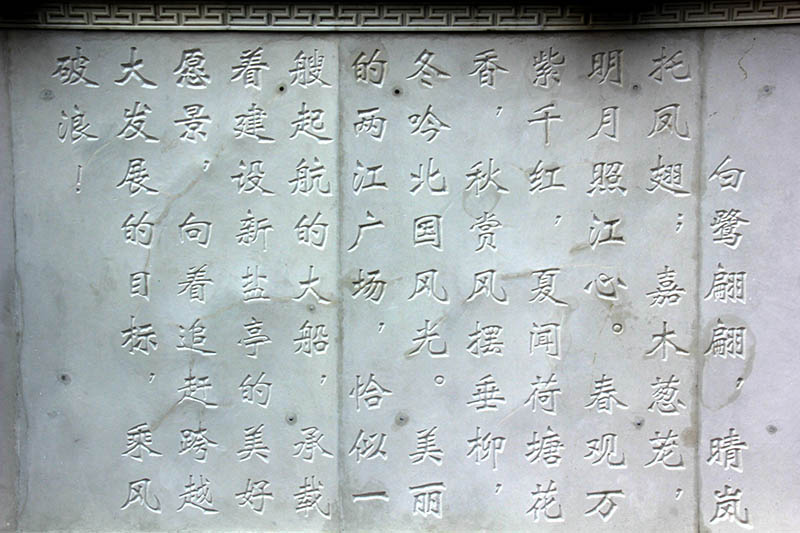 白鹭翩翩，晴岚
托凤翅；嘉木葱茏，
明月照江心。春观万
紫千红，夏闻荷塘花
香，秋赏风摆垂柳，
冬吟北国风光。美丽
的两江广场，恰似一
艘起航的大船，承载
着建设新盐亭的美好
愿景，向着追赶跨越
大发展的目标，乘风
破浪！